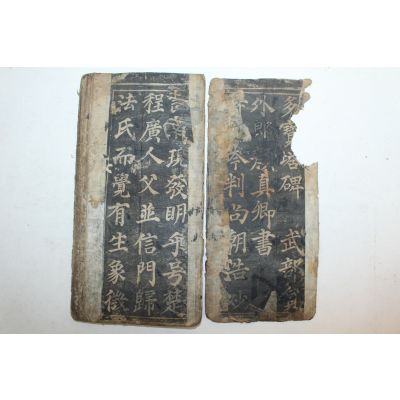 多寶塔碑 武部員
外郎 真卿書
岑判尚朝浩妙
南現發明乎号楚
程廣人父並信門歸
法氏而覺有生象徵